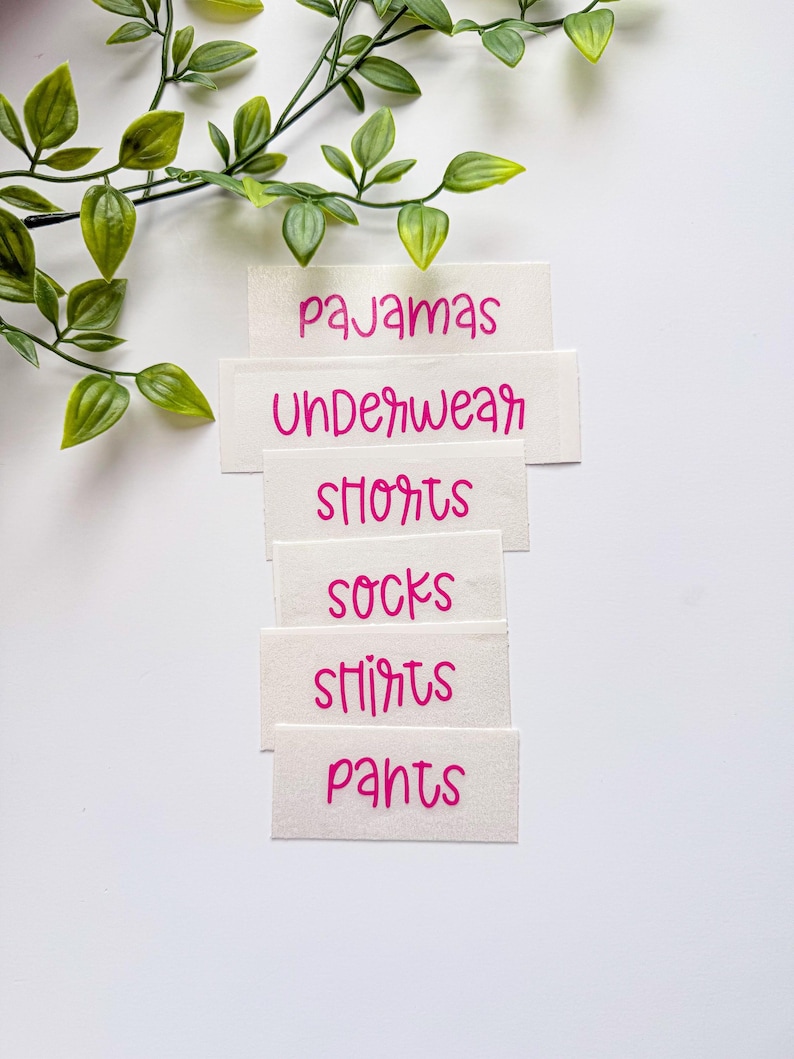 pajamas
underwear
shorts
socks
shirts
pants